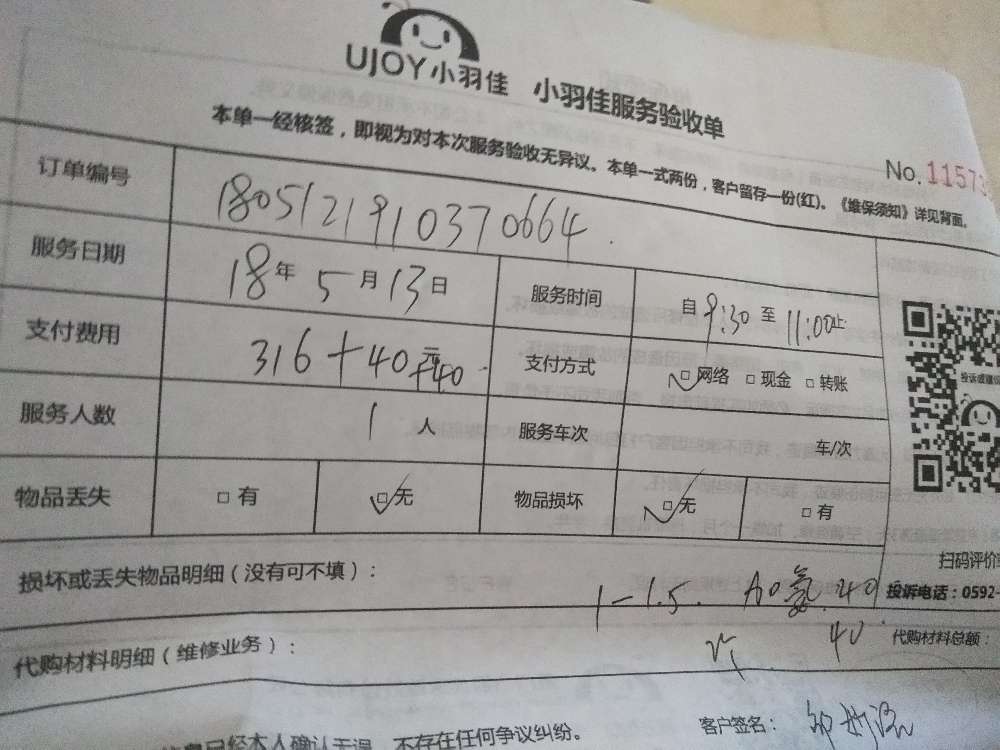 UJOY小羽佳 小羽佳服务验收单
本单一经核签，即视为对本次服务验收无异议。本单一式两份，客户留存一份(红)。《维保须知》详见背面。
No.11573
订单编号 180512191037 0664
服务日期 18年5月13日 服务时间 自9:30至11:00止
支付费用 316+40 支付方式 □网络 □现金 □转账
投诉或建议
服务人数 1人 服务车次 车/次
物品丢失 □有 □无 物品损坏 □无 □有
扫码评价
损坏或丢失物品明细（没有可不填）：
1-1.5. 加氟.40 投诉电话：0592-
代购材料明细（维修业务）： 40 代购材料总额：
已经本人确认无误，不存在任何争议纠纷。 客户签名：